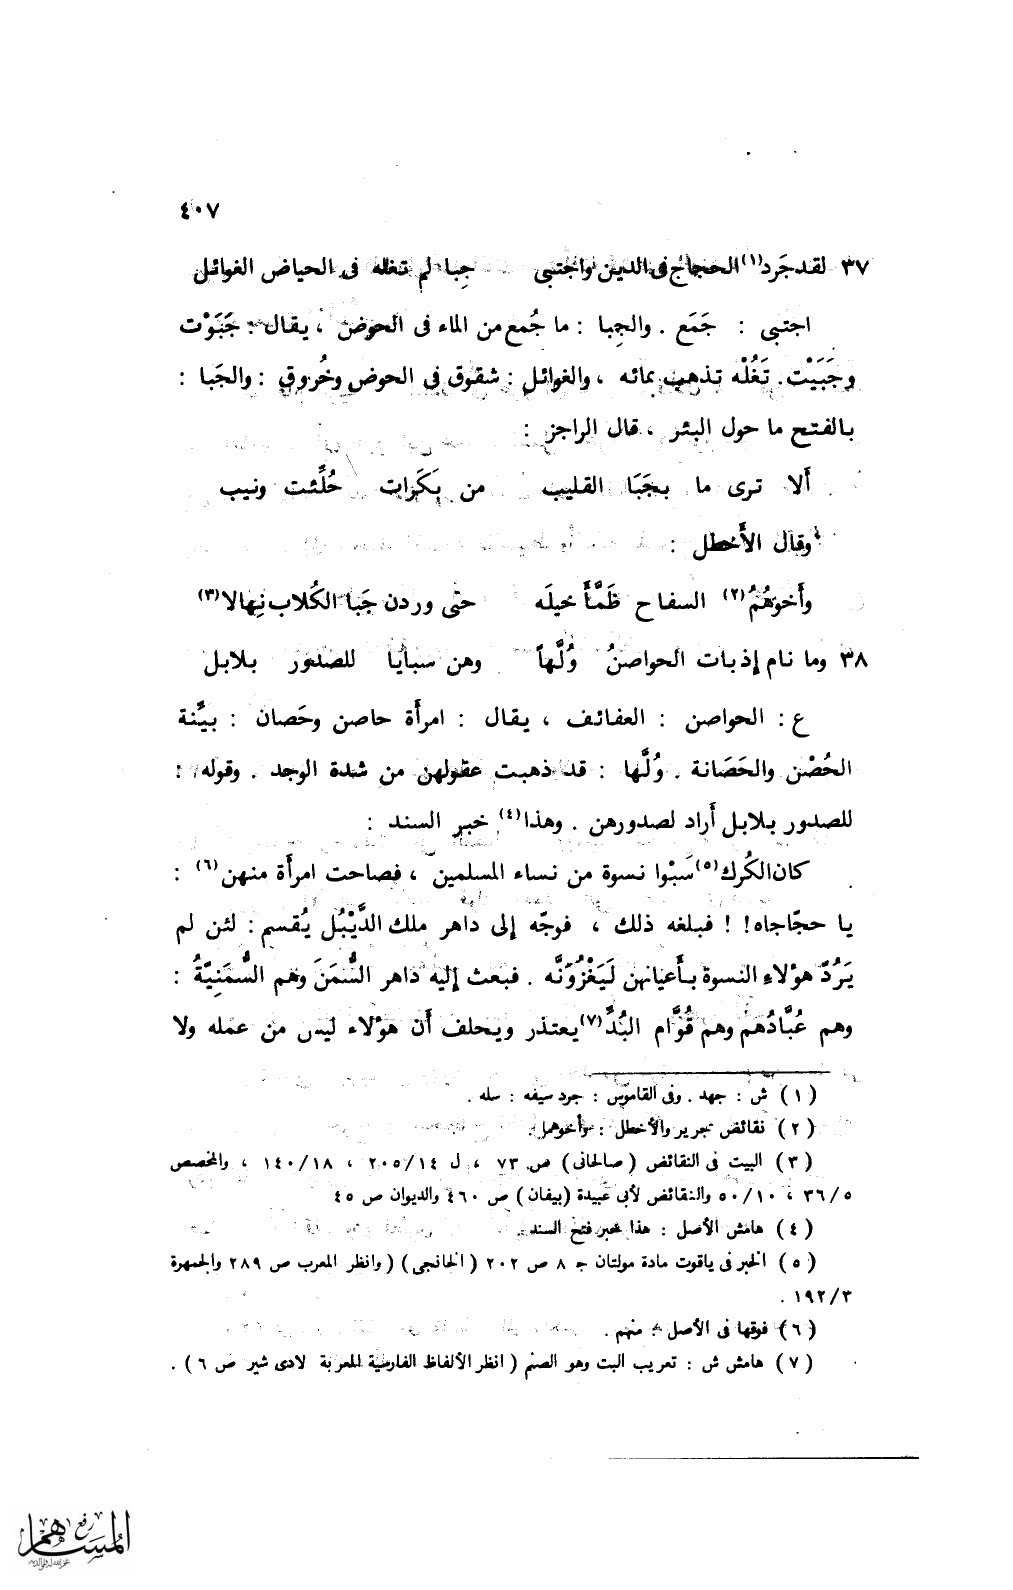 ٤٠٧
٣٧ لقد جَرد(١) الحجاج فى الدين واجتبى جِبا لم تغله فى الحياض الغوائل
اجتبى : جَمَع . والجِبا : ما جُمع من الماء فى الحوض ، يقال : جَبَوْت
وجَبَيْت. تَغُلْه تذهب بمائه ، والغوائل : شقوق فى الحوض وخُروق : والجَبا :
بالفتح ما حول البئر ، قال الراجز :
أَلا ترى ما بجَبَا القليب من بَكَرات حُلِّئت ونيب
وقال الأَخطل :
وأَخوهُمُ(٢) السفاح ظَمَّأَ خيلَه حتى وردن جَبا الكُلاب نِهالا(٣)
٣٨ وما نام إذ بات الحواصنُ وُلَّهاً وهن سبايا للصدور بلابل
ع : الحواصن : العفائف ، يقال : امرأَة حاصن وحَصان : بيِّنة
الحُصْن والحَصَانة . وُلَّها : قد ذهبت عقولهن من شدة الوجد . وقوله :
للصدور بلابل أَراد لصدورهن . وهذا(٤) خبر السند :
كان الكُرك(٥) سَبْوا نسوة من نساء المسلمين ، فصاحت امرأَة منهن(٦) :
يا حجّاجاه! ! فبلغه ذلك ، فوجّه إلى داهر ملك الدَّيْبُل يُقسم : لئن لم
يَرُدّ هؤلاءِ النسوة بأَعيانهن لَيَغْزُوَنَّه . فبعث إليه داهر السُّمَنَ وهم السُّمَنِيّةُ :
وهم عُبَّادُهُمْ وهم قُوَّام البُدِّ(٧) يعتذر ويحلف أَن هؤلاء ليس من عمله ولا
(١) ش : جهد . وفى القاموس : جرد سيفه : سله .
(٢) نقائض جرير والأخطل : وأخوهما .
(٣) البيت فى النقائض (صالحانى) ص ٧٣ ، ل ٢٠٥/١٤ ، ١٤٠/١٨ ، والمخصص
٣٦/٥ ، ٥٠/١٠ والنقائض لأبى عبيدة (بيفان) ص ٤٦٠ والديوان ص ٤٥
(٤) هامش الأصل : هذا خبر فتح السند .
(٥) الخبر فى ياقوت مادة مولتان ج ٨ ص ٢٠٢ ( الخانجى ) ( وانظر المعرب ص ٢٨٩ والجمهرة
١٩٢/٣ .
(٦) فوقها فى الأصل : منهم .
(٧) هامش ش : تعريب البت وهو الصنم ( انظر الألفاظ الفارسية المعربة لادى شير ص ٦ ) .
رفع
المساهم